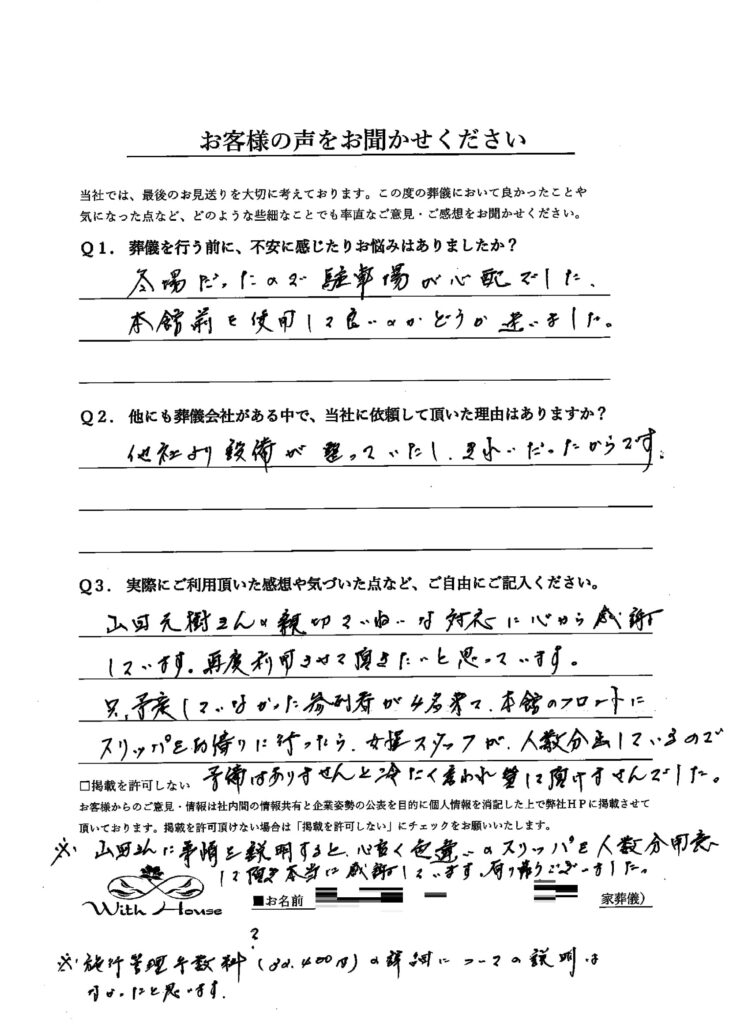 お客様の声をお聞かせください
当社では、最後のお見送りを大切に考えております。この度の葬儀において良かったことや
気になった点など、どのような些細なことでも率直なご意見・ご感想をお聞かせください。
Q1. 葬儀を行う前に、不安に感じたりお悩みはありましたか?
冬場だったので駐車場が心配でした、
本館前を使用して良いのかどうか迷いました。
Q2. 他にも葬儀会社がある中で、当社に依頼して頂いた理由はありますか?
他社より設備が整っていたし、きれいだったからです。
Q3. 実際にご利用頂いた感想や気づいた点など、ご自由にご記入ください。
山田元樹さんの親切ていねいな対応に心から感謝
しています。再度利用させて頂きたいと思っています。
只、予定していなかった参列者が4名来て、本館のフロントに
スリッパをお借りに行ったら、女性スタッフが、人数分出しているので
予備はありませんと冷たく言われ貸して頂けませんでした。
□掲載を許可しない
お客様からのご意見・情報は社内間の情報共有と企業姿勢の公表を目的に個人情報を消記した上で弊社HPに掲載させて
頂いております。掲載を許可頂けない場合は「掲載を許可しない」にチェックをお願いいたします。
※ 山田さんに事情を説明すると、心良く色違いのスリッパを人数分用意
して頂き本当に感謝しています。有り難うございました。
With House
■お名前 家葬儀)
?
※施行管理手数料(88.400円)の詳細についての説明は
なかったと思います.